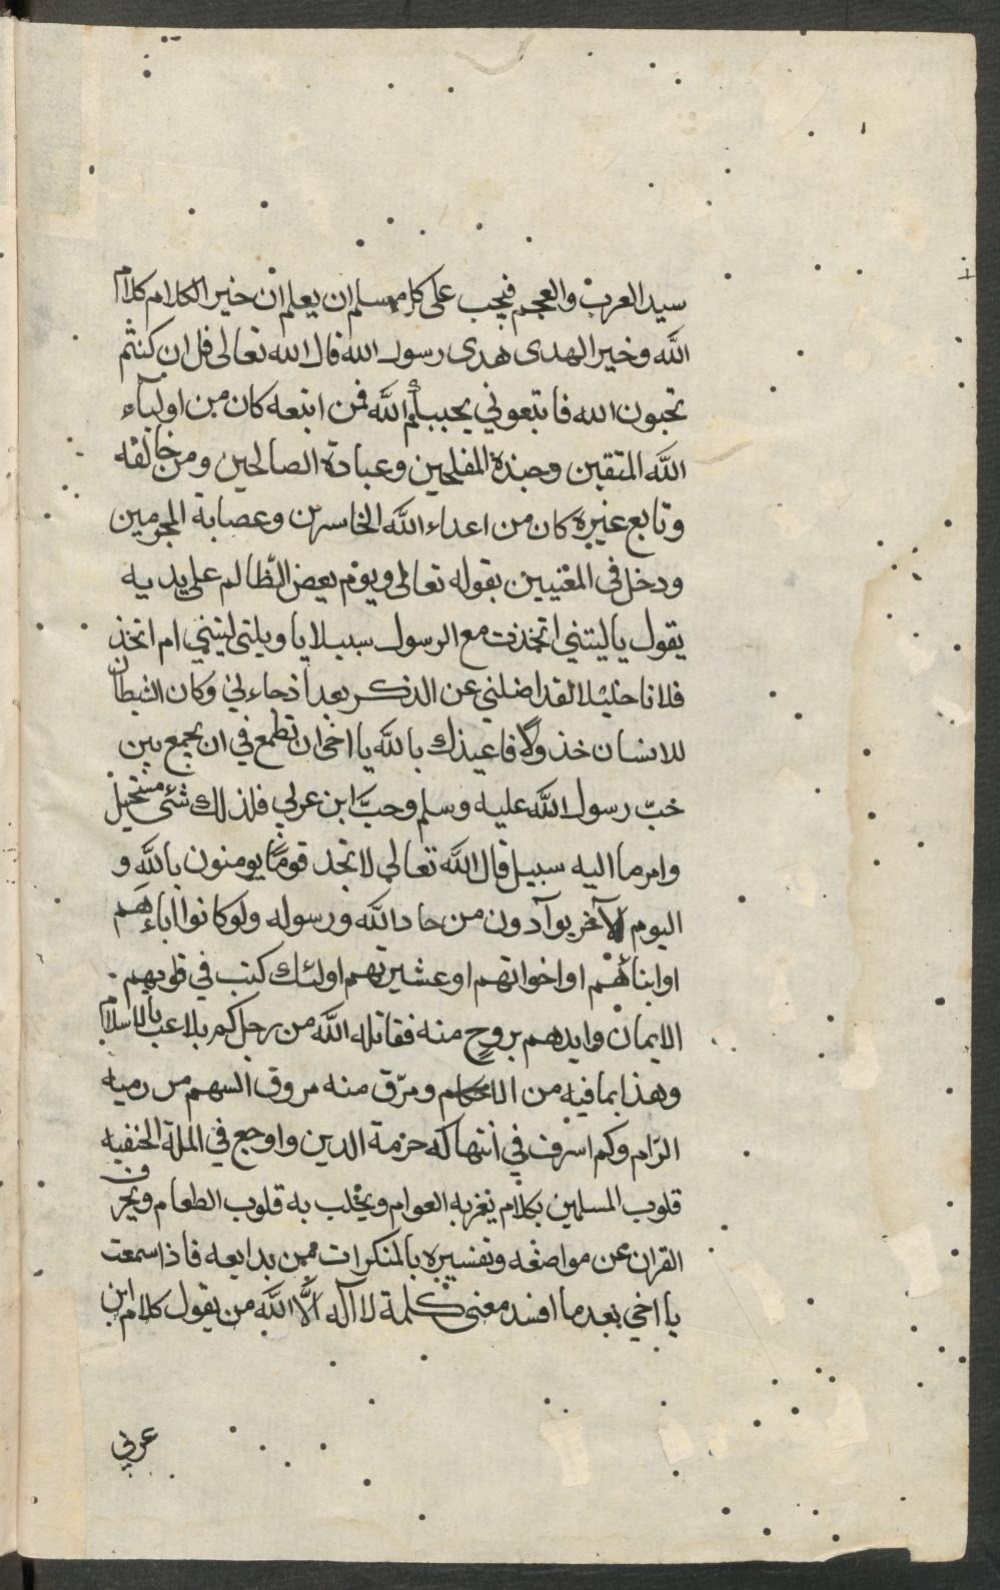 سيد العرب والعجم فيجب على كل مسلم ان يعلم ان خير الكلام كلام
الله وخير الهدى هدى رسول الله قال الله تعالى قل ان كنتم
تحبون الله فاتبعوني يحببكم الله فمن اتبعه كان من اوليآء
الله المتقين وجنده المفلحين وعباده الصالحين ومن خالفه
وتابع غيره كان من اعداء الله الخاسرين وعصابة المجرمين
ودخل في المعنيين بقوله تعالى ويوم يعض الظالم على يديه
يقول ياليتني اتخذت مع الرسول سبيلا يا ويلتي ليتني لم اتخذ
فلانا خليلا لقد اضلني عن الذكر بعد اذ جاءني وكان الشيطان
للانسان خذولا فاعيذك بالله يا اخي ان تطمع في ان يجمع بين
حبّ رسول الله عليه وسلم وحبّ ابن عربي فلذلك شئ مستحيل
وامر ما اليه سبيل قال الله تعالى لا تجد قومًا يومنون بالله و
اليوم الآخر يوآدون من حاد الله ورسوله ولو كانوا اباءهم
او ابناهم او اخوانهم او عشيرتهم اولئك كتب في قلوبهم
الايمان وايدهم بروح منه فقاتله الله من رجل كم بلاعب بالاسلام
وهذا بما فيه من ومرّق منه مروق السهم من رميه
الرّام وكم اسرف في انتهاكه حرمة الدين واوجع في الملة الحنفيه
قلوب المسلمين بكلام يغربه العوام ويخلب به قلوب الطعام ويحرف
القران عن مواضعه وتفسيره بالمنكرات ممن بدايعه فاذا سمعت
يا اخي بعد ما افسد معنى كلمة لا اله الّا الله من يقول كلام ابن
عربي